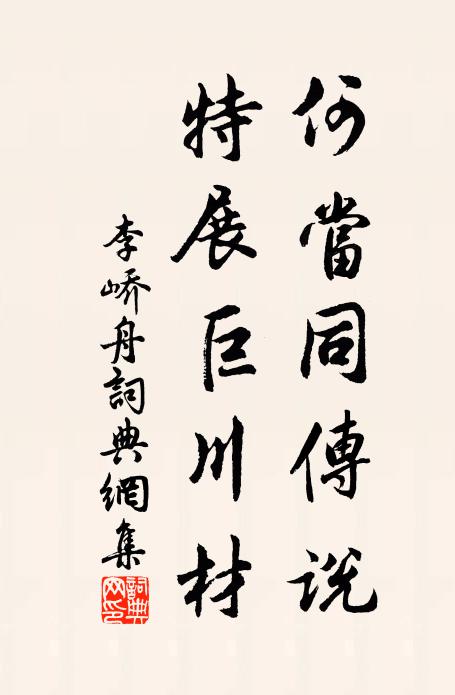 何當同傳說
特展巨川材
李嶠舟詞典網集
詞典网印